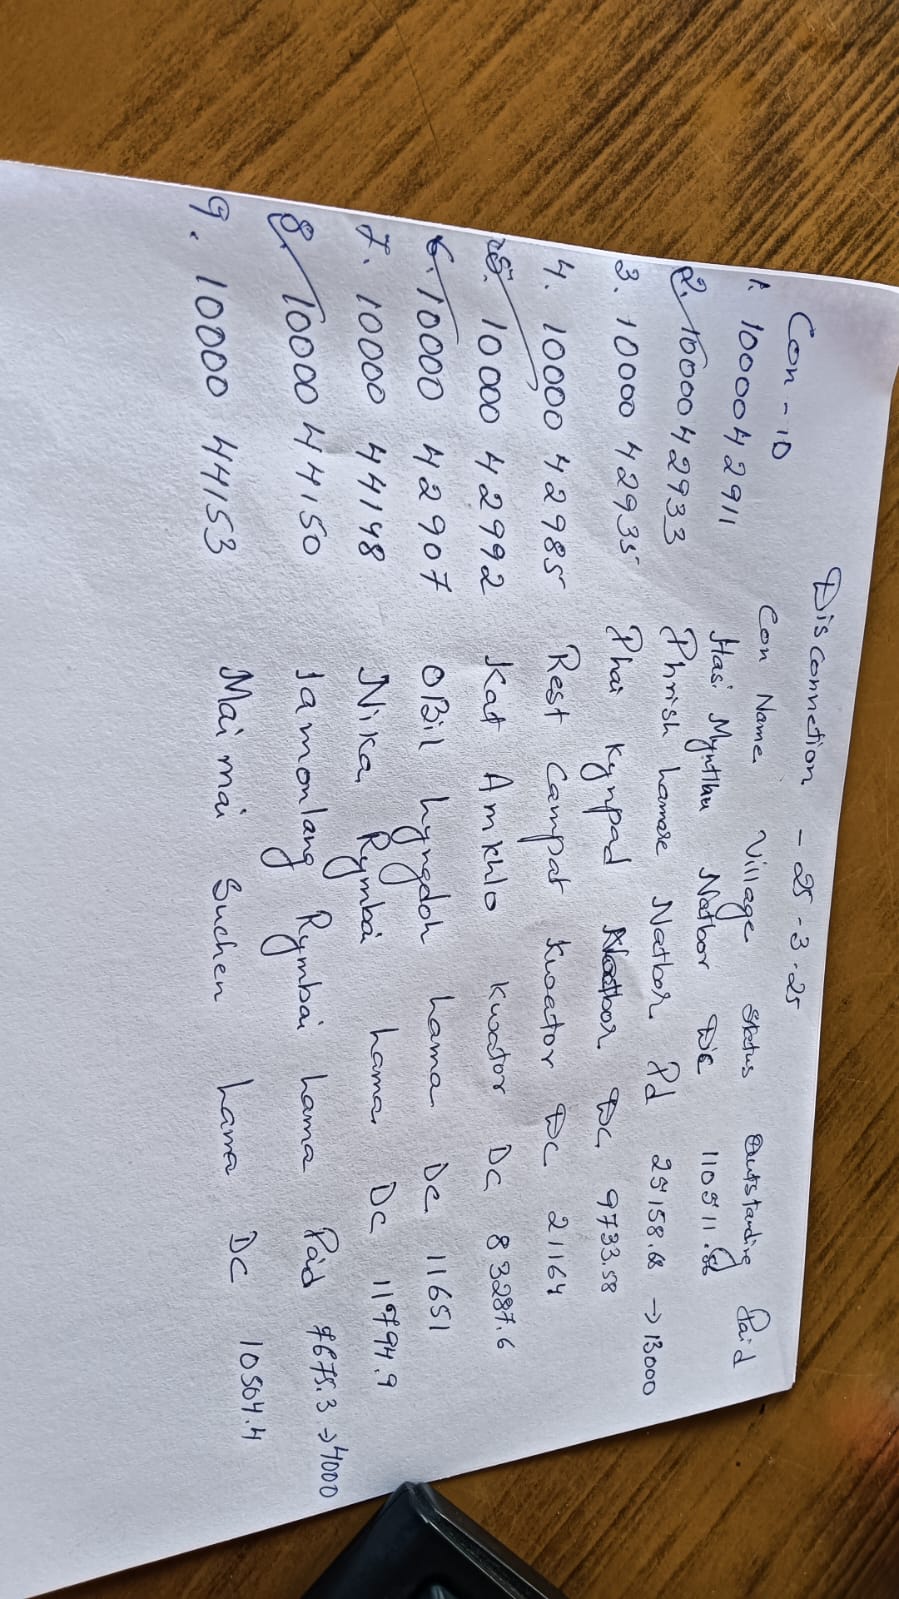 Disconnection - 25-3-25
Con-ID Con Name Village Status Outstanding Paid
1. 1000042911 Hasi Mynthlu Natbor DC 110511.
2. 1000042933 Phrish Lamare Natbor Pd 25158.68 → 13000
3. 1000042935 Phai Kynpad Natbor DC 9733.58
4. 1000042985 Rest Campat Kwator DC 21164
5. 1000042992 Kat Amkhlo Kwator DC 83287.6
6. 1000042907 OBil Lyngdoh Lama DC 11651
7. 1000044148 Nika Rymbai Lama DC 11794.9
8. 1000044150 Iamonlang Rymbai Lama Paid 7675.3 → 4000
9. 1000044153 Maimai Suchen Lama DC 10504.4